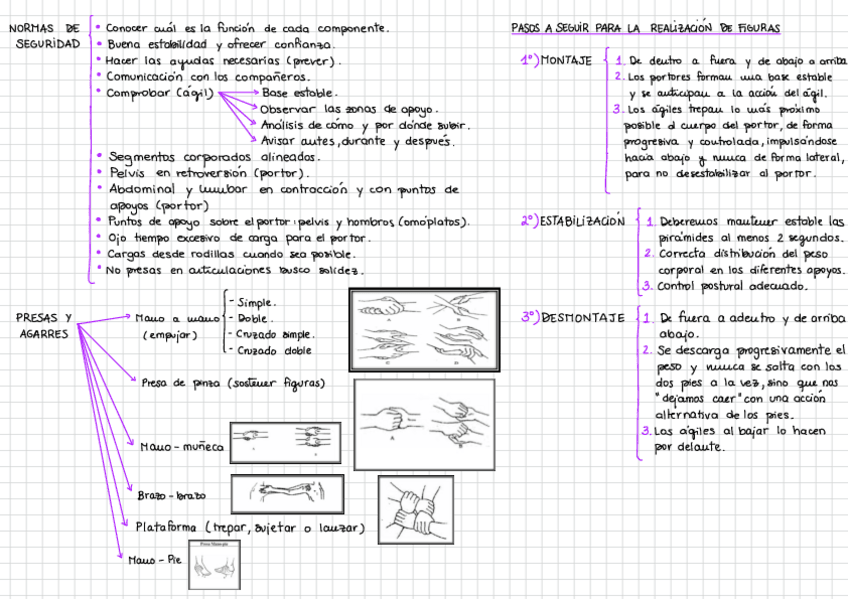 NORMAS DE SEGURIDAD
• Conocer cuál es la función de cada componente.
• Buena estabilidad y ofrecer confianza.
• Hacer las ayudas necesarias (prever).
• Comunicación con los compañeros.
• Comprobar (ágil)
Base estable.
Observar las zonas de apoyo.
Análisis de cómo y por dónde subir.
Avisar antes, durante y después.
• Segmentos corporados alineados.
• Pelvis en retroversión (portor).
• Abdominal y lumbar en contracción y con puntos de
apoyos (portor)
• Puntos de apoyo sobre el portor: pelvis y hombros (omóplatos).
• Ojo tiempo excesivo de carga para el portor.
• Cargas desde rodillas cuando sea posible.
• No presas en articulaciones busco solidez.
PRESAS Y AGARRES
Mano a mano
(empujar)
- Simple.
- Doble.
- Cruzado simple.
- Cruzado doble
Presa de pinza (sostener figuras)
Mano - muñeca
Brazo - brazo
Plataforma (trepar, sujetar o lanzar)
Mano - Pie
A
PASOS A SEGUIR PARA LA REALIZACIÓN DE FIGURAS
1º) MONTAJE
1. De dentro a fuera y de abajo a arriba
2. Los portores forman una base estable
y se anticipan a la acción del ágil.
3. Los ágiles trepan lo más próximo
posible al cuerpo del portor, de forma
progresiva y controlada, impulsándose
hacia abajo y nunca de forma lateral,
para no desestabilizar al portor.
2º) ESTABILIZACIÓN
1. Deberemos mantener estable las
pirámides al menos 2 segundos.
2. Correcta distribución del peso
corporal en los diferentes apoyos.
3. Control postural adecuado.
3º) DESMONTAJE
1. De fuera a adentro y de arriba
abajo.
2. Se descarga progresivamente el
peso y nunca se salta con los
dos pies a la vez, sino que nos
"dejamos caer" con una acción
alternativa de los pies.
3. Los ágiles al bajar lo hacen
por delante.